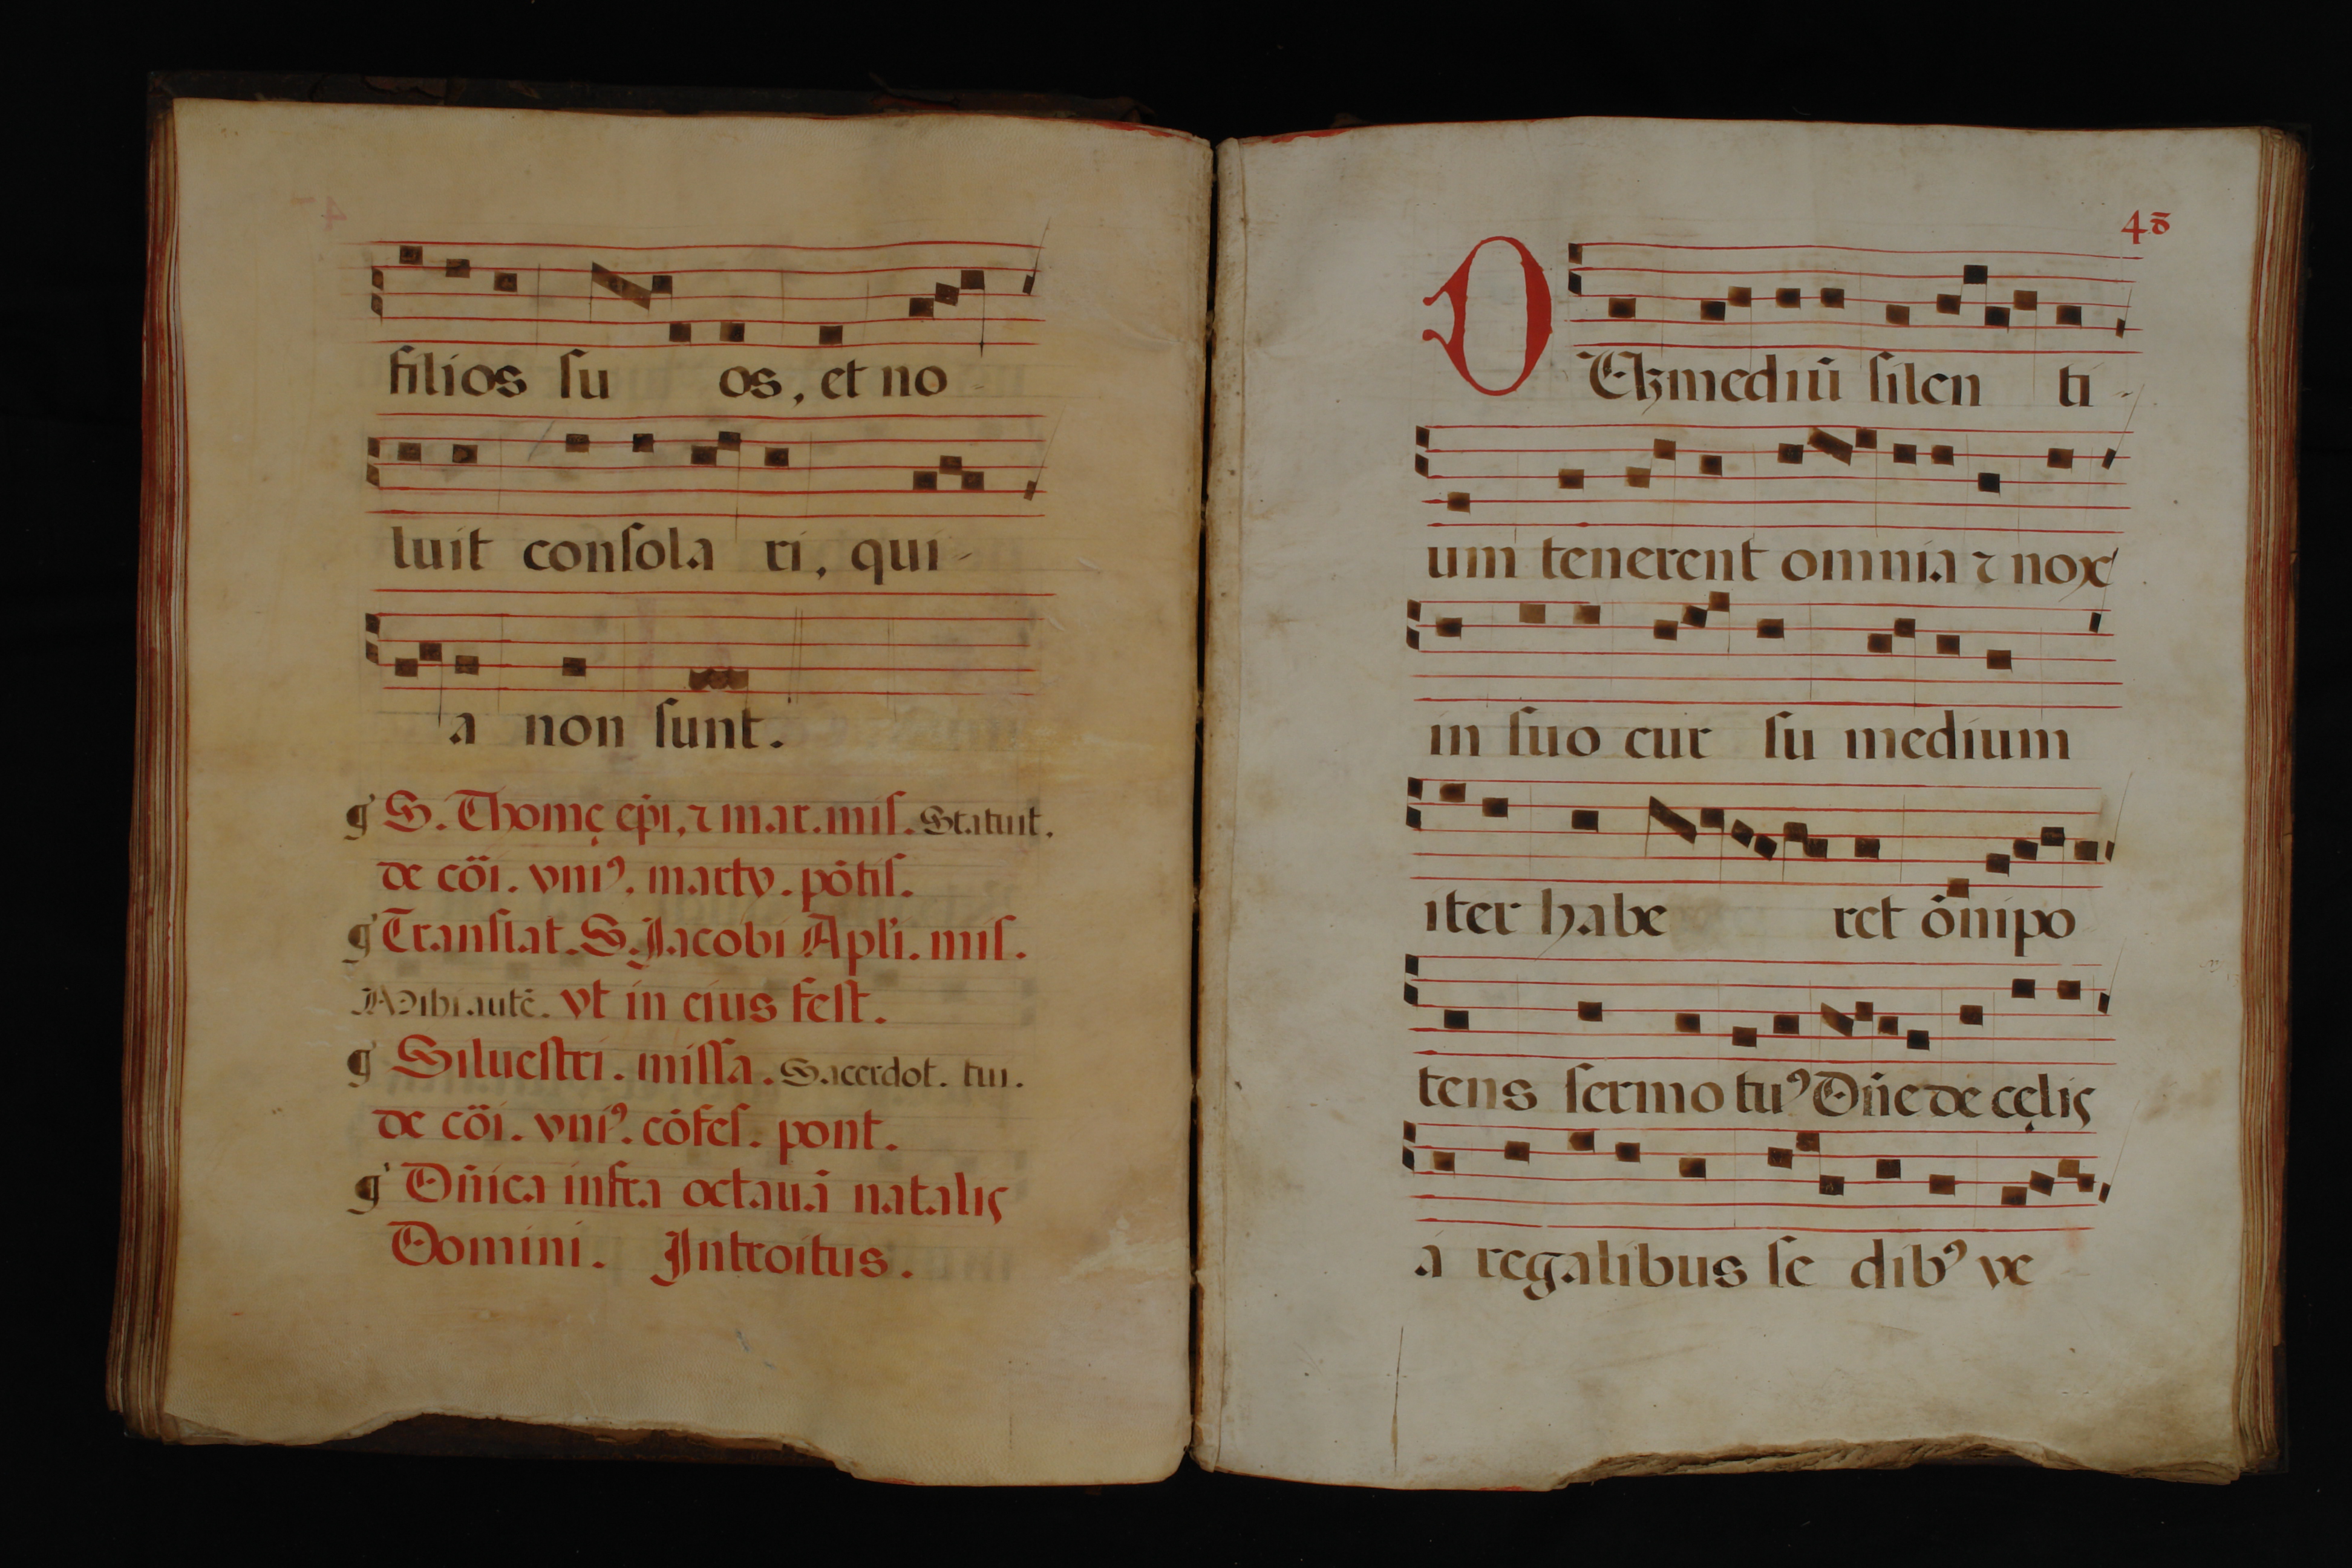 filios ſu os, et no-
luit conſola ri, qui-
a non ſunt.
S. Thomę ep̄i, ⁊ mar. miſ. Statuit.
de cōi. vniꝰ. marty. pōtiſ.
Tranſlat. S. Jacobi Apl̄i. miſ.
Mihi autē. vt in eius feſt.
Silueſtri. miſſa. Sacerdot. tui.
de cōi. vniꝰ. cōfeſ. pont.
Dn̄ica infra octauā natalis
Domini. Introitus.
48
DVm mediū ſilen ti-
um tenerent omnia ⁊ nox
in ſuo cur ſu medium
iter habe ret ōnipo
tens ſermo tuꝰ Dn̄e de cęlis
á regalibus ſe dibꝰ ve